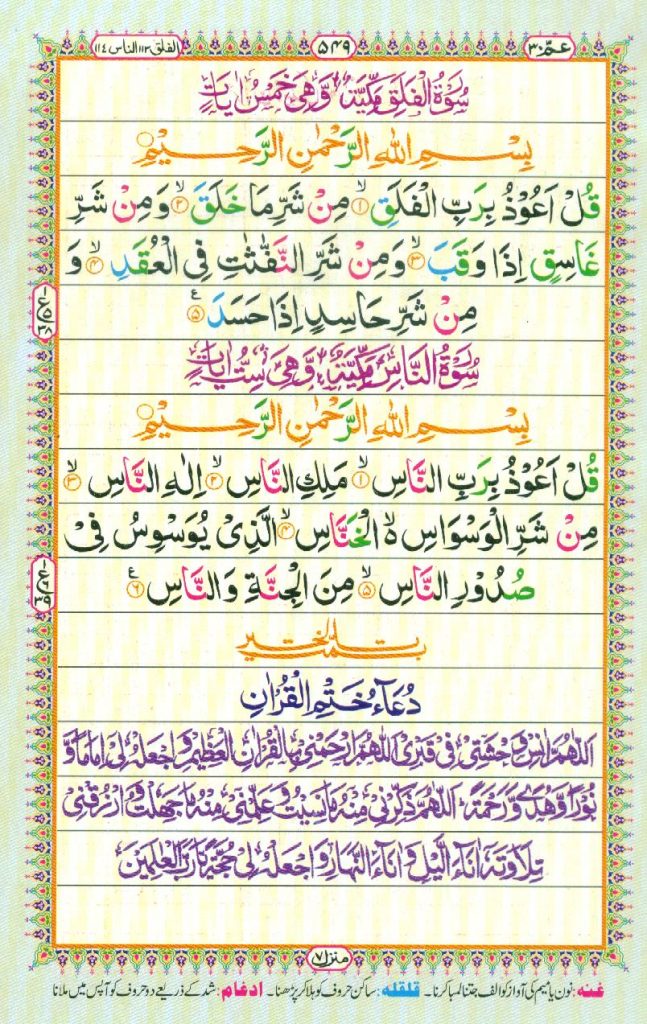 عمّ ٣٠
٥٤٩
الفلق ١١٣ الناس ١١٤
سُوْرَةُ الْفَلَقِ مَكِّيَّةٌ وَّهِیَ خَمْسُ اٰيَاتٍ
بِسْمِ اللّٰهِ الرَّحْمٰنِ الرَّحِيْمِ
قُلْ اَعُوْذُ بِرَبِّ الْفَلَقِ ۙ۱ مِنْ شَرِّ مَا خَلَقَ ۙ۲ وَمِنْ شَرِّ
غَاسِقٍ اِذَا وَقَبَ ۙ۳ وَمِنْ شَرِّ النَّفّٰثٰتِ فِی الْعُقَدِ ۙ۴ وَ
مِنْ شَرِّ حَاسِدٍ اِذَا حَسَدَ ۵ ع
سُوْرَةُ النَّاسِ مَكِّيَّةٌ وَّهِیَ سِتُّ اٰيَاتٍ
بِسْمِ اللّٰهِ الرَّحْمٰنِ الرَّحِيْمِ
قُلْ اَعُوْذُ بِرَبِّ النَّاسِ ۙ۱ مَلِكِ النَّاسِ ۙ۲ اِلٰهِ النَّاسِ ۙ۳
مِنْ شَرِّ الْوَسْوَاسِ ۙ٥ الْخَنَّاسِ ۙ۴ الَّذِیْ يُوَسْوِسُ فِیْ
صُدُوْرِ النَّاسِ ۙ۵ مِنَ الْجِنَّةِ وَ النَّاسِ ۶ ع
دُعَآءُ خَتْمِ الْقُرْاٰنِ
اَللّٰهُمَّ اٰنِسْ وَحْشَتِیْ فِیْ قَبْرِیْ اَللّٰهُمَّ ارْحَمْنِیْ بِالْقُرْاٰنِ الْعَظِيْمِ وَاجْعَلْهُ لِیْ اِمَامًا وَّ
نُوْرًا وَّهُدًی وَّرَحْمَةً اَللّٰهُمَّ ذَكِّرْنِیْ مِنْهُ مَا نَسِيْتُ وَعَلِّمْنِیْ مِنْهُ مَا جَهِلْتُ وَارْزُقْنِیْ
تِلَاوَتَهٗ اٰنَآءَ الَّيْلِ وَاٰنَآءَ النَّهَارِ وَاجْعَلْهُ لِیْ حُجَّةً يَّا رَبَّ الْعٰلَمِيْنَ
منزل ٧
غنه: نون یا میم کی آواز کو الف جتنا لمبا کرنا۔ قلقله: ساکن حروف کو ہلا کر پڑھنا۔ ادغام: شد کے ذریعے دو حروف کو آپس میں ملانا